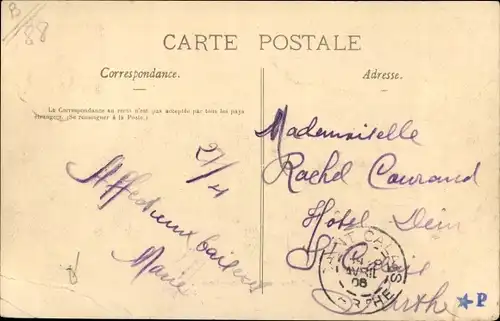 B
88
CARTE POSTALE
Correspondance.
Adresse.
La Correspondance au recto n'est pas acceptée par tous les pays
étrangers. (Se renseigner à la Poste.)
21/4
Affectueux baisers
Marie
Mademoiselle
Rachel Couraud
Hôtel
St Calais
Sarthe
AVRIL
P